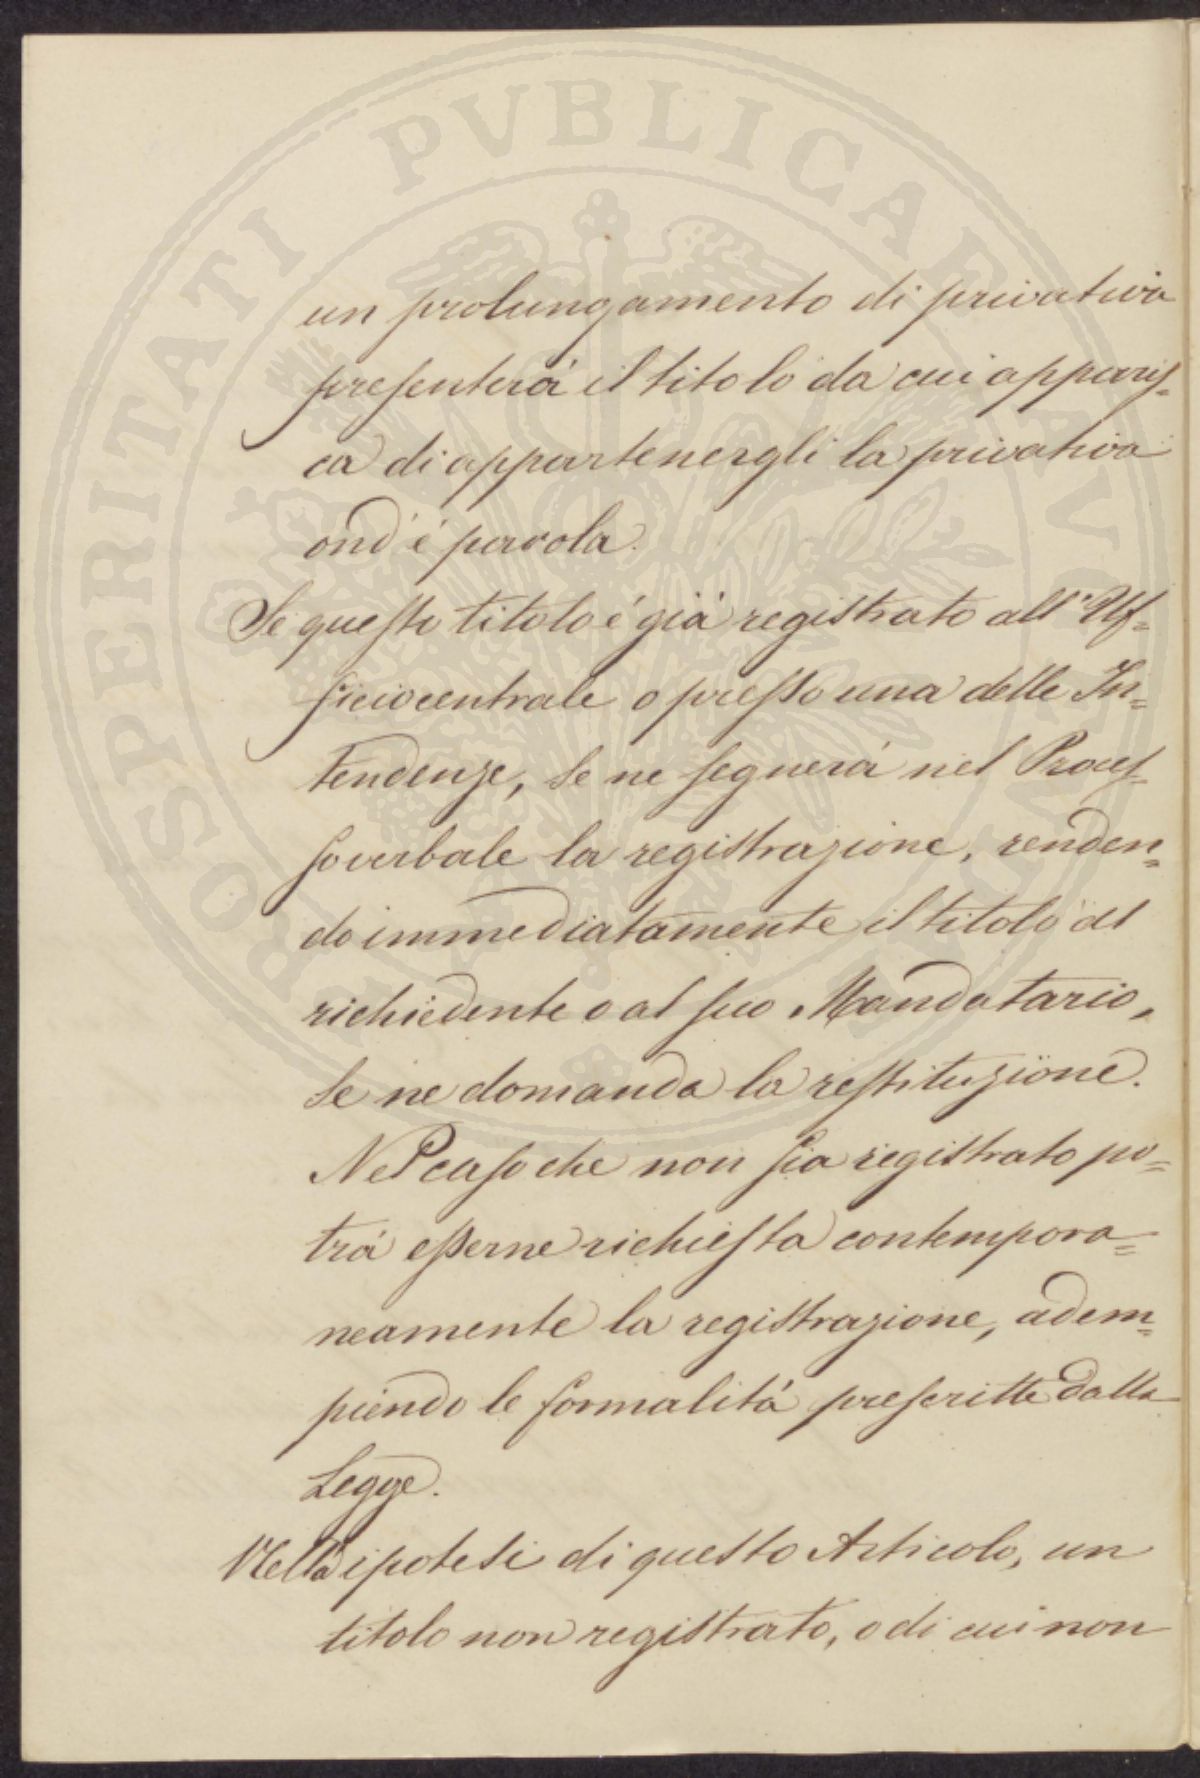 PROSPERITATI PVBLICAE AVGENDAE
un prolungamento di privativa
presenterà il titolo da cui apparis-
ca di appartenergli la privativa
ond'è parola.
Se questo titolo è già registrato all'Uf=
ficio centrale o presso una delle In=
tendenze, se ne segnerà nel Proces-
soverbale la registrazione, renden=
do immediatamente il titolo al
richiedente o al suo Mandatario,
se ne domanda la restituzione.
Nel caso che non sia registrato po=
trà esserne richiesta contempora=
neamente la registrazione, adem=
piendo le formalità prescritte dalla
Legge.
Nella ipotesi di questo Articolo, un
titolo non registrato, o di cui non